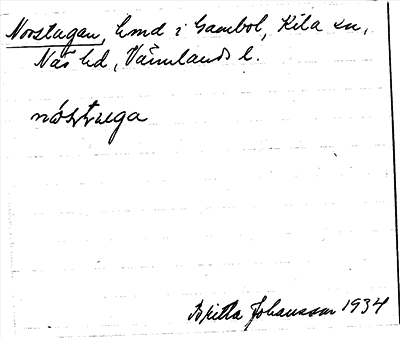 Norstugan, hmd i Gambol, Kila sn,
Näs hd, Värmlands l.
Britta Johansson 1934